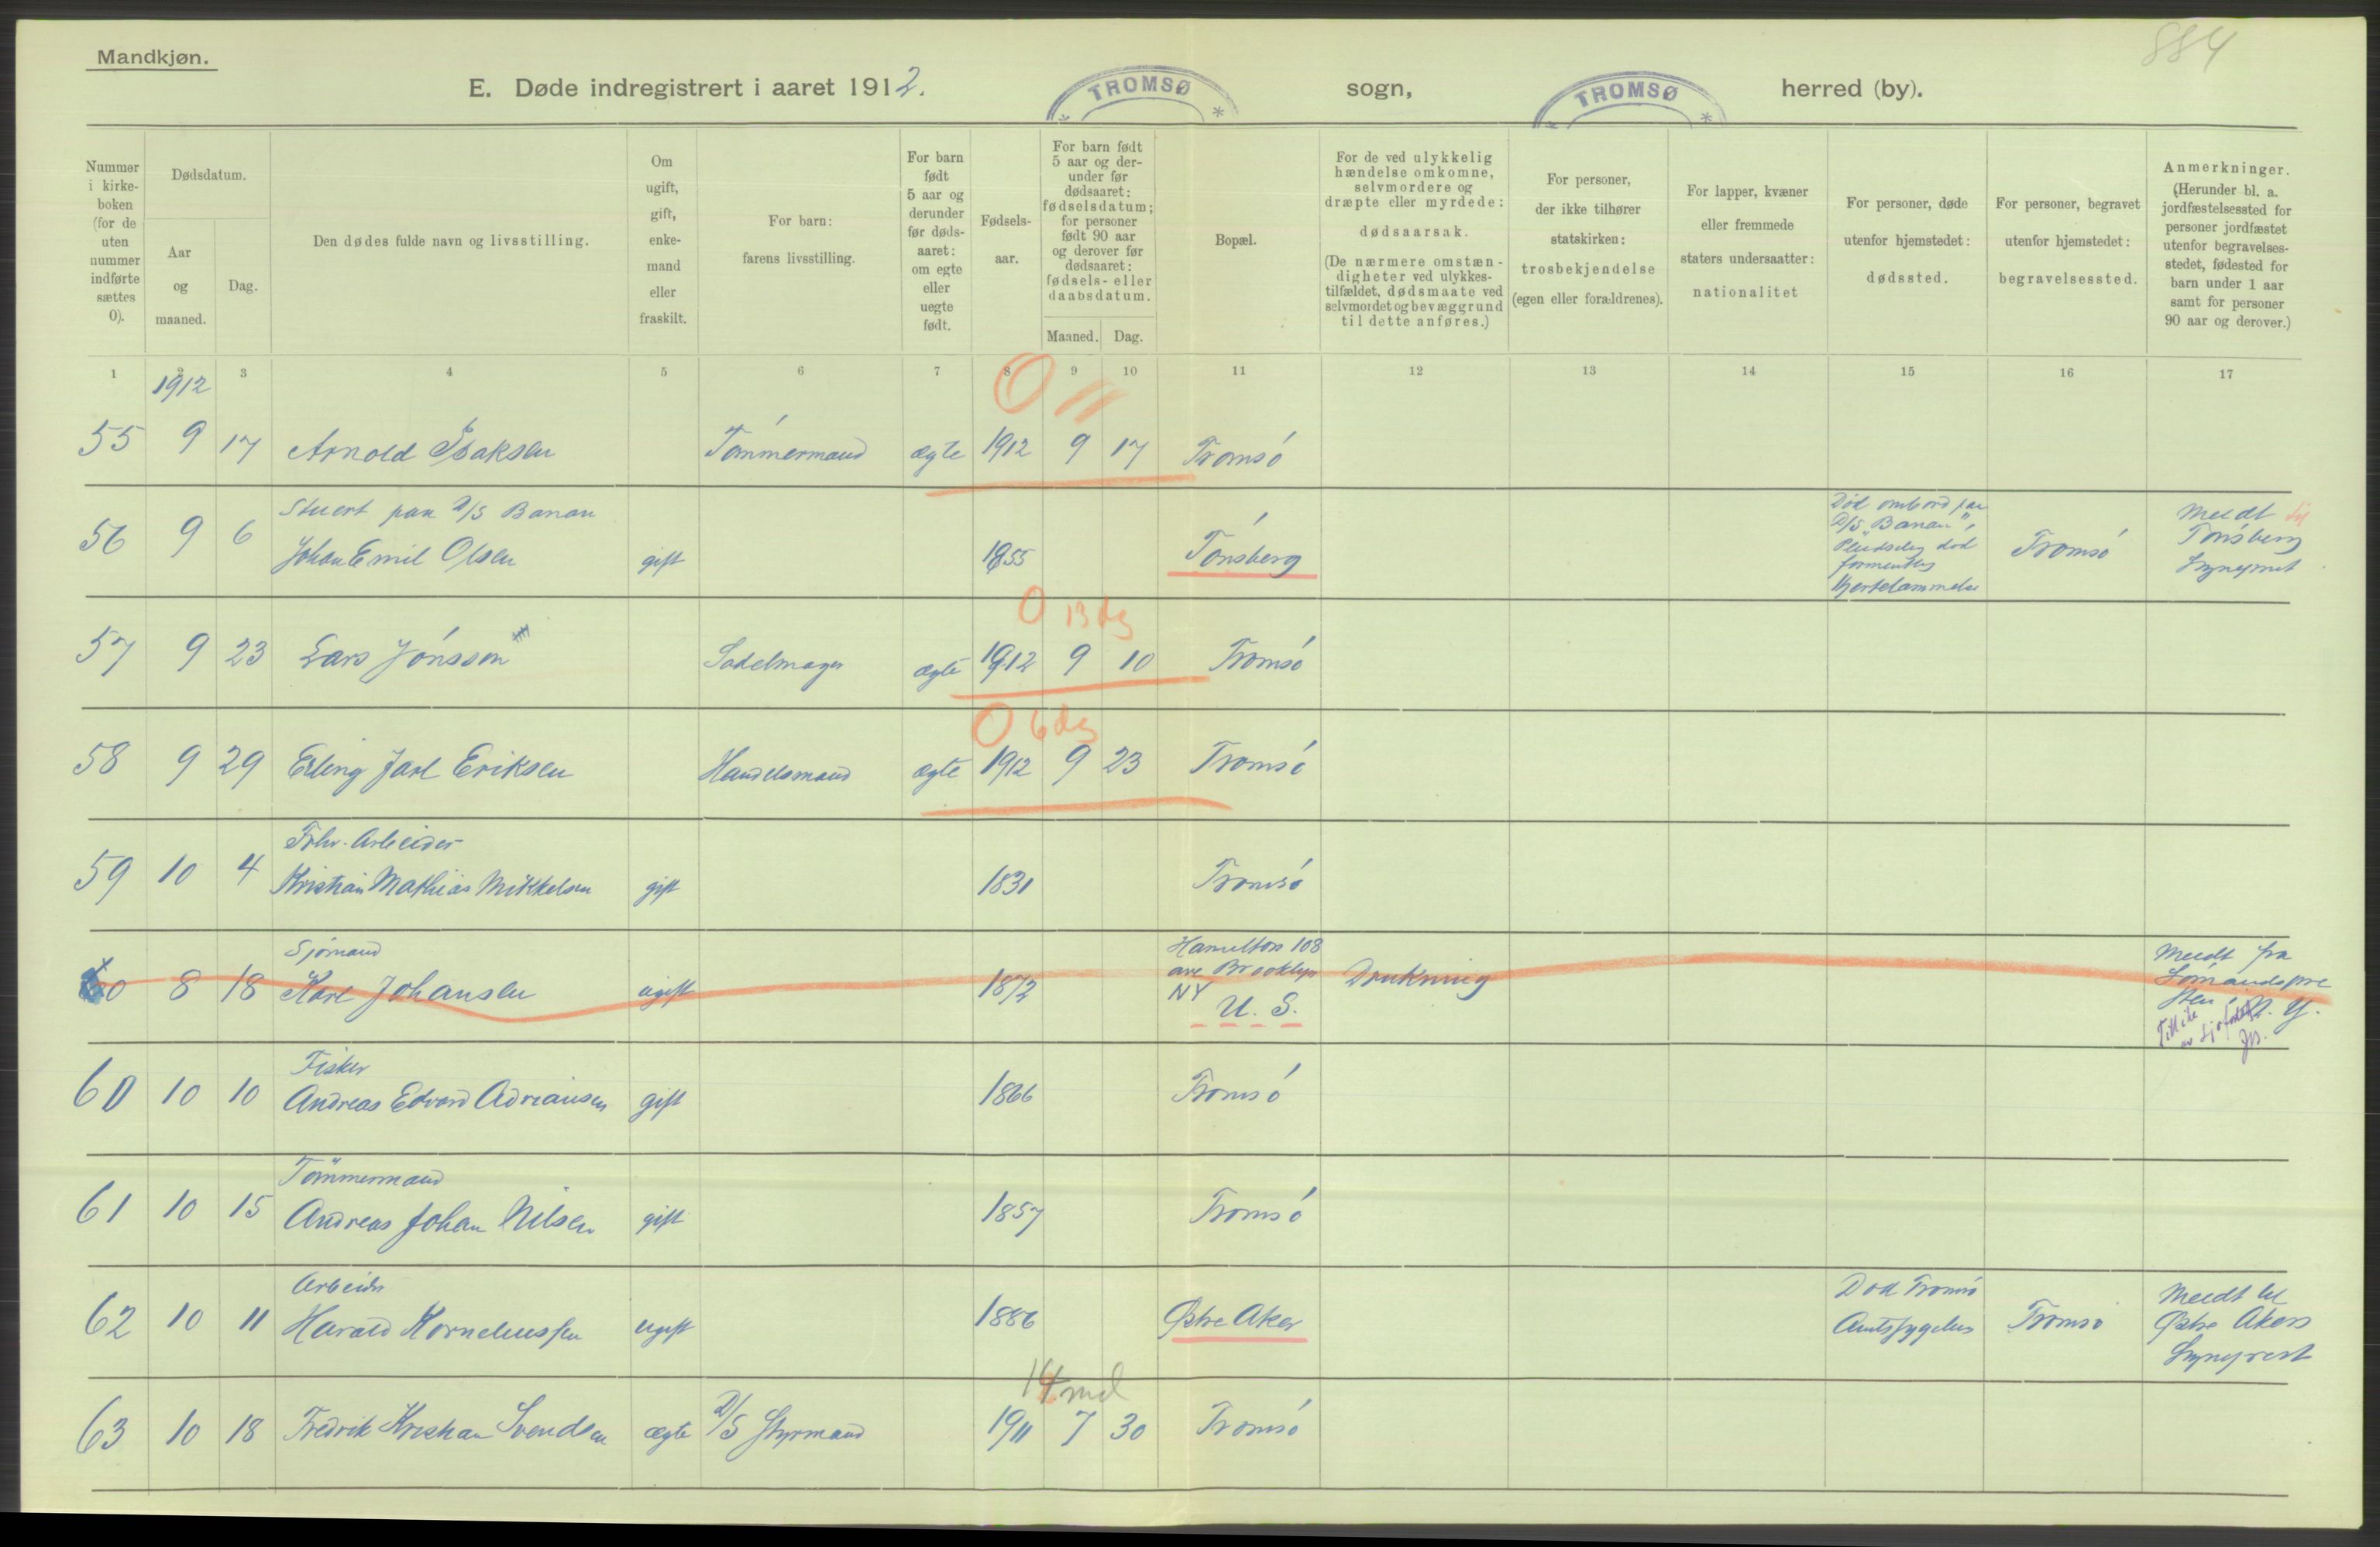 884
Mandkjøn.
E. Døde indregistrert i aaret 1912. TROMSØ sogn, TROMSØ herred (by).
Nummer i kirkeboken (for de uten nummer indførte sættes 0).
Dødsdatum.
Aar og maaned.
Dag.
Den dødes fulde navn og livsstilling.
Om ugift, gift, enkemand eller fraskilt.
For barn: farens livsstilling.
For barn født 5 aar og derunder før dødsaaret: om egte eller uegte født.
Fødselsaar.
For barn født 5 aar og derunder før dødsaaret: fødselsdatum; for personer født 90 aar og derover før dødsaaret: fødsels- eller daabsdatum.
Maaned. Dag.
Bopæl.
For de ved ulykkelig hændelse omkomne, selvmordere og dræpte eller myrdede: dødsaarsak.
(De nærmere omstændigheter ved ulykkestilfældet, dødsmaate ved selvmordet og bevæggrund til dette anføres.)
For personer, der ikke tilhører statskirken: trosbekjendelse (egen eller forældrenes).
For lapper, kvæner eller fremmede staters undersaatter: nationalitet
For personer, døde utenfor hjemstedet: dødssted.
For personer, begravet utenfor hjemstedet: begravelsessted.
Anmerkninger. (Herunder bl. a. jordfæstelsessted for personer jordfæstet utenfor begravelsesstedet, fødested for barn under 1 aar samt for personer 90 aar og derover.)
1 2 3 4 5 6 7 8 9 10 11 12 13 14 15 16 17
1912
0 11
55 9 17 Arnold Isaksen Tómmermand ægte 1912 9 17 Tromsó
Stuert paa D/S Banan
56 9 6 Johan Emil Olsen gift 1855 Tónsberg Død ombord paa D/S "Banan", Pludselig død formentlig Hjertelammelse Tromsó Meldt til Tónsberg
0 13 dg
57 9 23 Lars Jónsson Sadelmager ægte 1912 9 10 Tromsó
0 6 dg
58 9 29 Erling Jarl Eriksen Handelsmand ægte 1912 9 23 Tromsó
Fhv. Arbeider
59 10 4 Kristian Mathias Mikkelsen gift 1831 Tromsó
Sjómand
60 8 18 Karl Johansen ugift 1872 Hamilton 108 ave Brooklyn NY U. S. Drukning Meldt fra Sómandspresten, N. Y.
Fisker
60 10 10 Andreas Edvard Adriansen gift 1866 Tromsó
Tömmermand
61 10 15 Andreas Johan Nilsen gift 1857 Tromsó
Arbeider
62 10 11 Harald Korneliussen ugift 1886 Østre Aker Død Tromsó Amtssygehus Tromsó Meldt til Østre Akers
14 md
63 10 18 Fredrik Kristian Svendsen ægte D/S Styrmand 1911 7 30 Tromsó